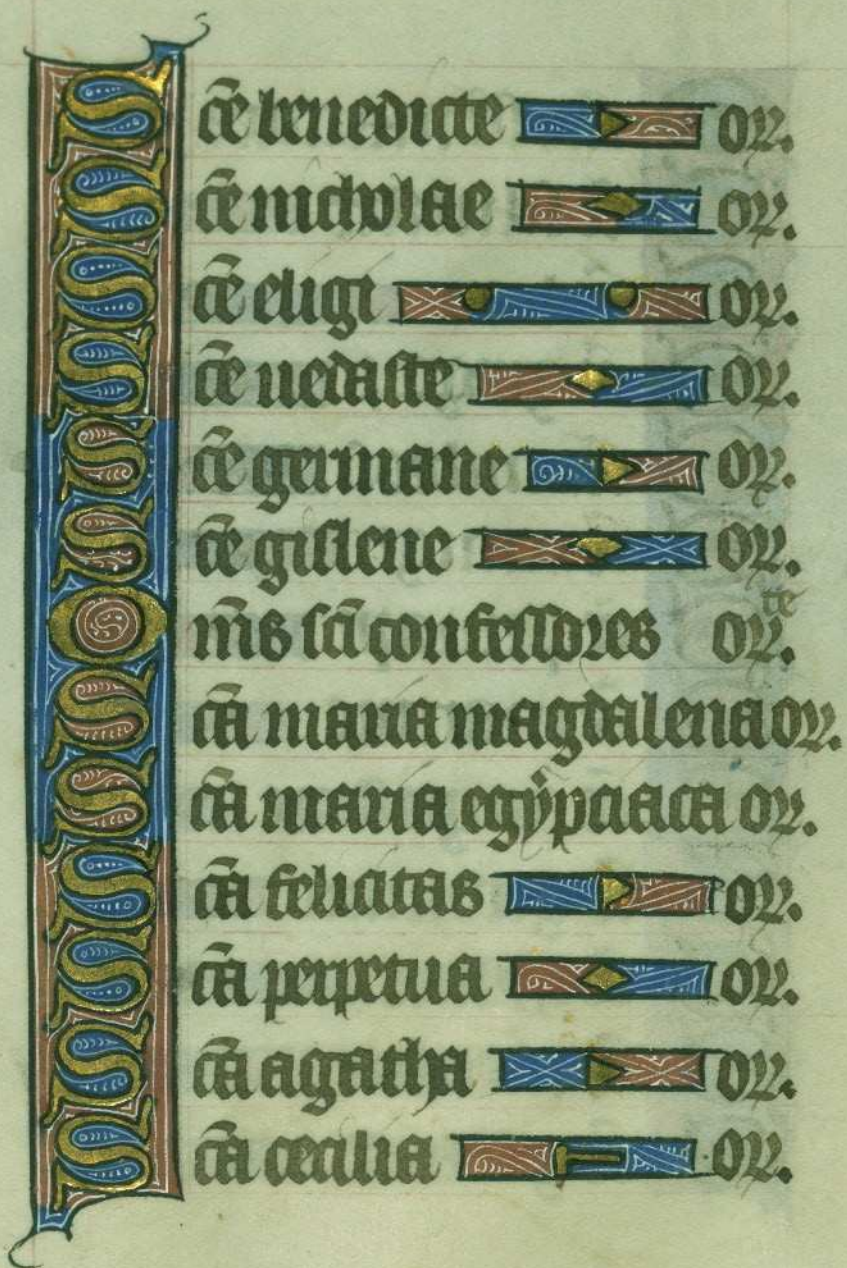 Sc̄e benedicte or.
Sc̄e nicholae or.
Sc̄e eligi or.
Sc̄e uedaste or.
Sc̄e germane or.
Sc̄e gislene or.
Om̄s sc̄i confessores or.te
Sc̄a maria magdalena or.
Sc̄a maria egẏpciaca or.
Sc̄a felicitas or.
Sc̄a perpetua or.
Sc̄a agatha or.
Sc̄a cecilia or.